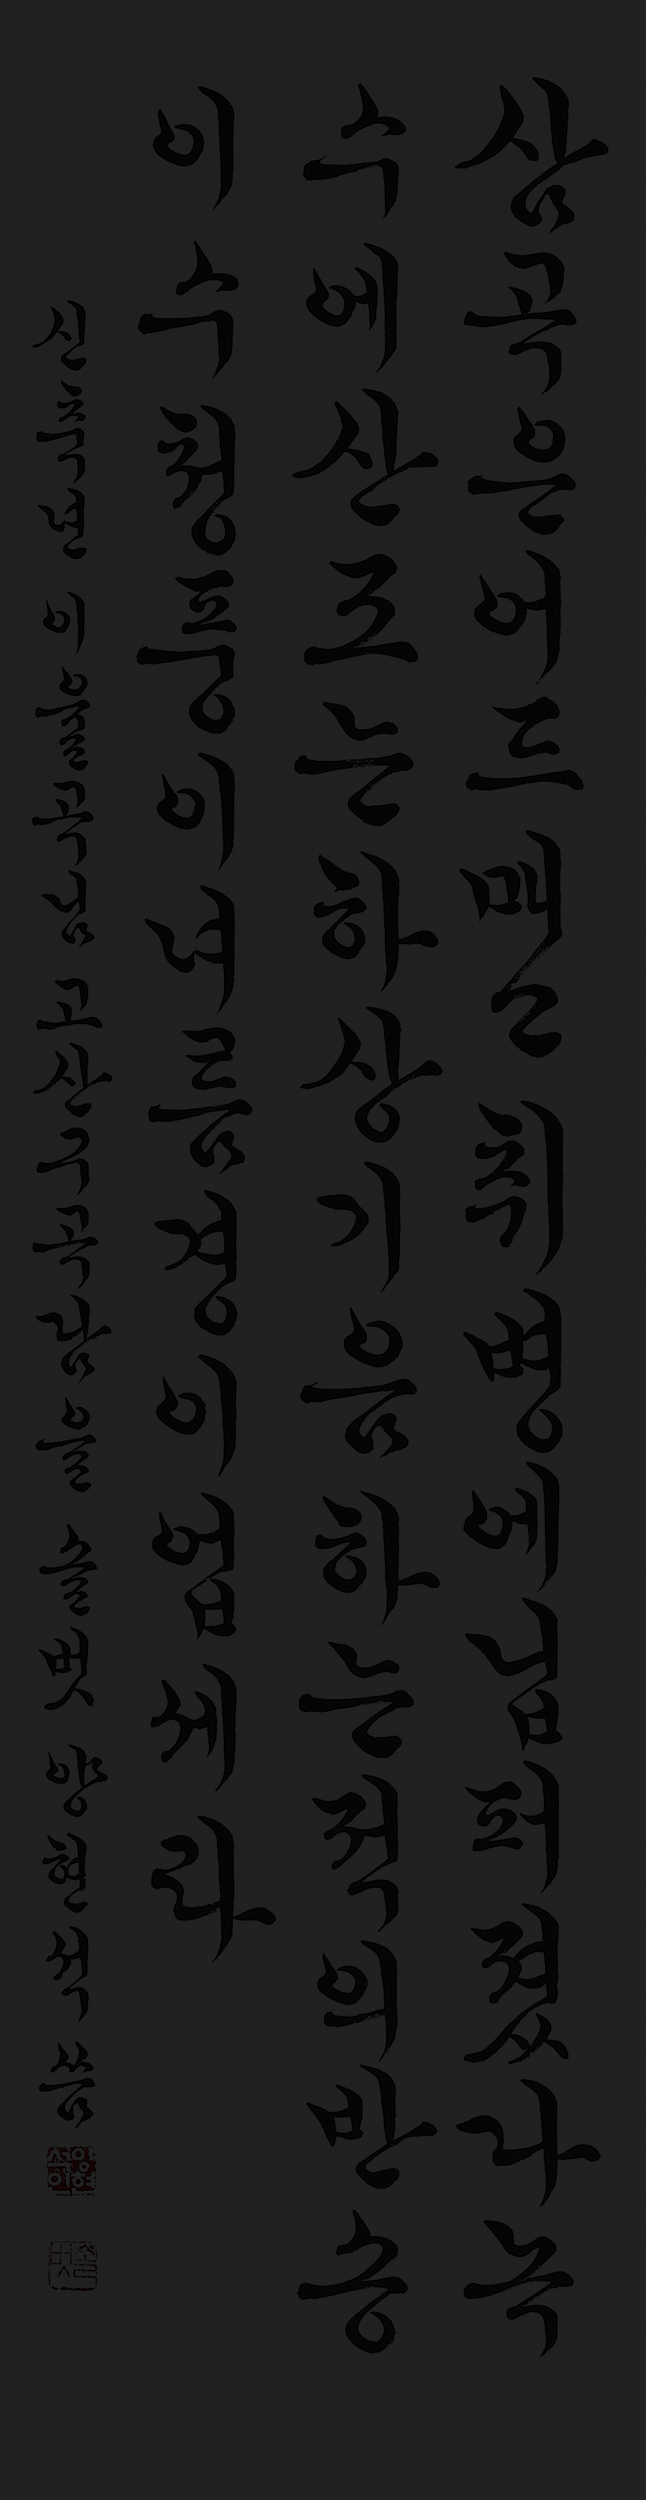 삼곡은 어드 취병에 닙 페졋다 녹
수에 산됴는 하상기음하는 적의 반송
이 수쳥풍이 녀름 경이 업세라
신축년 이율곡님 고산구곡담을 벗 양현석 씀